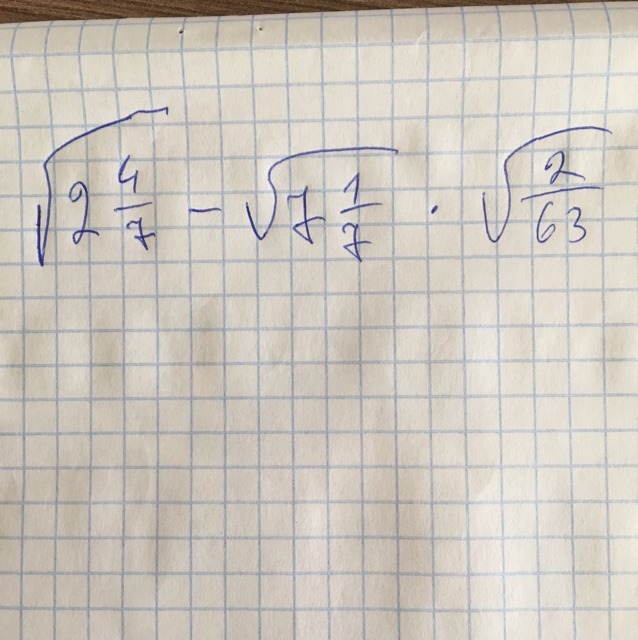 √(2 4/7) - √(7 1/7) · √(2/63)